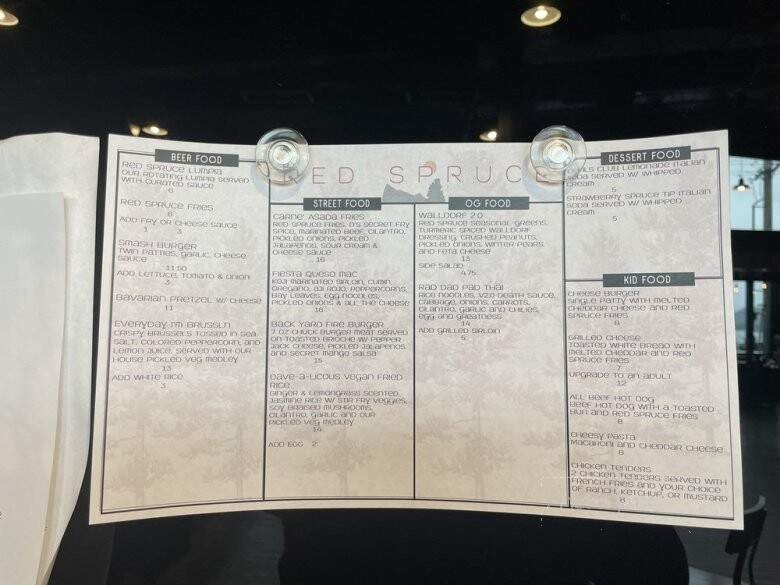 RED SPRUCE
BEER FOOD
RED SPRUCE LUMPIA
OUR ROTATING LUMPIA SERVED
WITH CURATED SAUCE
6
RED SPRUCE FRIES
6
ADD FRY OR CHEESE SAUCE
1 3
SMASH BURGER
TWIN PATTIES, GARLIC, CHEESE
SAUCE
11.50
ADD LETTUCE, TOMATO & ONION
3
BAVARIAN PRETZEL W/ CHEESE
11
EVERYDAY I'M BRUSSLN
CRISPY BRUSSELS TOSSED IN SEA
SALT, COLORED PEPPERCORN, AND
LEMON JUICE. SERVED WITH OUR
HOUSE PICKLED VEG MEDLEY
13
ADD WHITE RICE
3
STREET FOOD
CARNE' ASADA FRIES
RED SPRUCE FRIES, D'S SECRET FRY
SPICE, MARINATED BEEF, CILANTRO,
PICKLED ONIONS, PICKLED
JALAPENOS, SOUR CREAM &
CHEESE SAUCE
16
FIESTA QUESO MAC
KOJI MARINATED SIRLOIN, CUMIN,
OREGANO, POPPERCORNS,
BAY LEAVES, EGG NOODLES,
PICKLED ONIONS & ALL THE CHEESE
16
BACK YARD FIRE BURGER
7 OZ CHUCK BURGER MEAT SERVED
ON TOASTED BRIOCHE W/ PEPPER
JACK CHEESE, PICKLED JALAPENOS
AND SECRET MANGO SALSA
15
DAVE-A-LICOUS VEGAN FRIED
RICE
GINGER & LEMONGRASS SCENTED
JASMINE RICE W/ STIR FRY VEGGIES,
SOY BRAISED MUSHROOMS,
CILANTRO, GARLIC AND OUR
PICKLED VEG MEDLEY
14
ADD EGG 2
OG FOOD
WALLDORF 2.0
RED SPRUCE SEASONAL GREENS,
TURMERIC SPICED WALLDORF
DRESSING, CRUSHED PEANUTS,
PICKLED ONIONS, WINTER PEARS,
AND FETA CHEESE
13
SIDE SALAD
4.75
RAD DAD PAD THAI
RICE NOODLES, V2.0 DEATH SAUCE,
CABBAGE, ONIONS, CARROTS,
CILANTRO, GARLIC AND CHILIES,
EGG AND GREATNESS
14
ADD GRILLED SIRLOIN
5
DESSERT FOOD
CLUB LEMONADE ITALIAN
SODA SERVED W/ WHIPPED
CREAM
5
STRAWBERRY SPRUCE TIP ITALIAN
SODA SERVED W/ WHIPPED
CREAM
5
KID FOOD
CHEESE BURGER
SINGLE PATTY WITH MELTED
CHEDDAR CHEESE AND RED
SPRUCE FRIES
8
GRILLED CHEESE
TOASTED WHITE BREAD WITH
MELTED CHEDDAR AND RED
SPRUCE FRIES
7
UPGRADE TO AN ADULT
12
ALL BEEF HOT DOG
BEEF HOT DOG WITH A TOASTED
BUN AND RED SPRUCE FRIES
8
CHEESY PASTA
MACARONI AND CHEDDAR CHEESE
8
CHICKEN TENDERS
2 CHICKEN TENDERS SERVED WITH
FRENCH FRIES AND YOUR CHOICE
OF RANCH, KETCHUP, OR MUSTARD
8